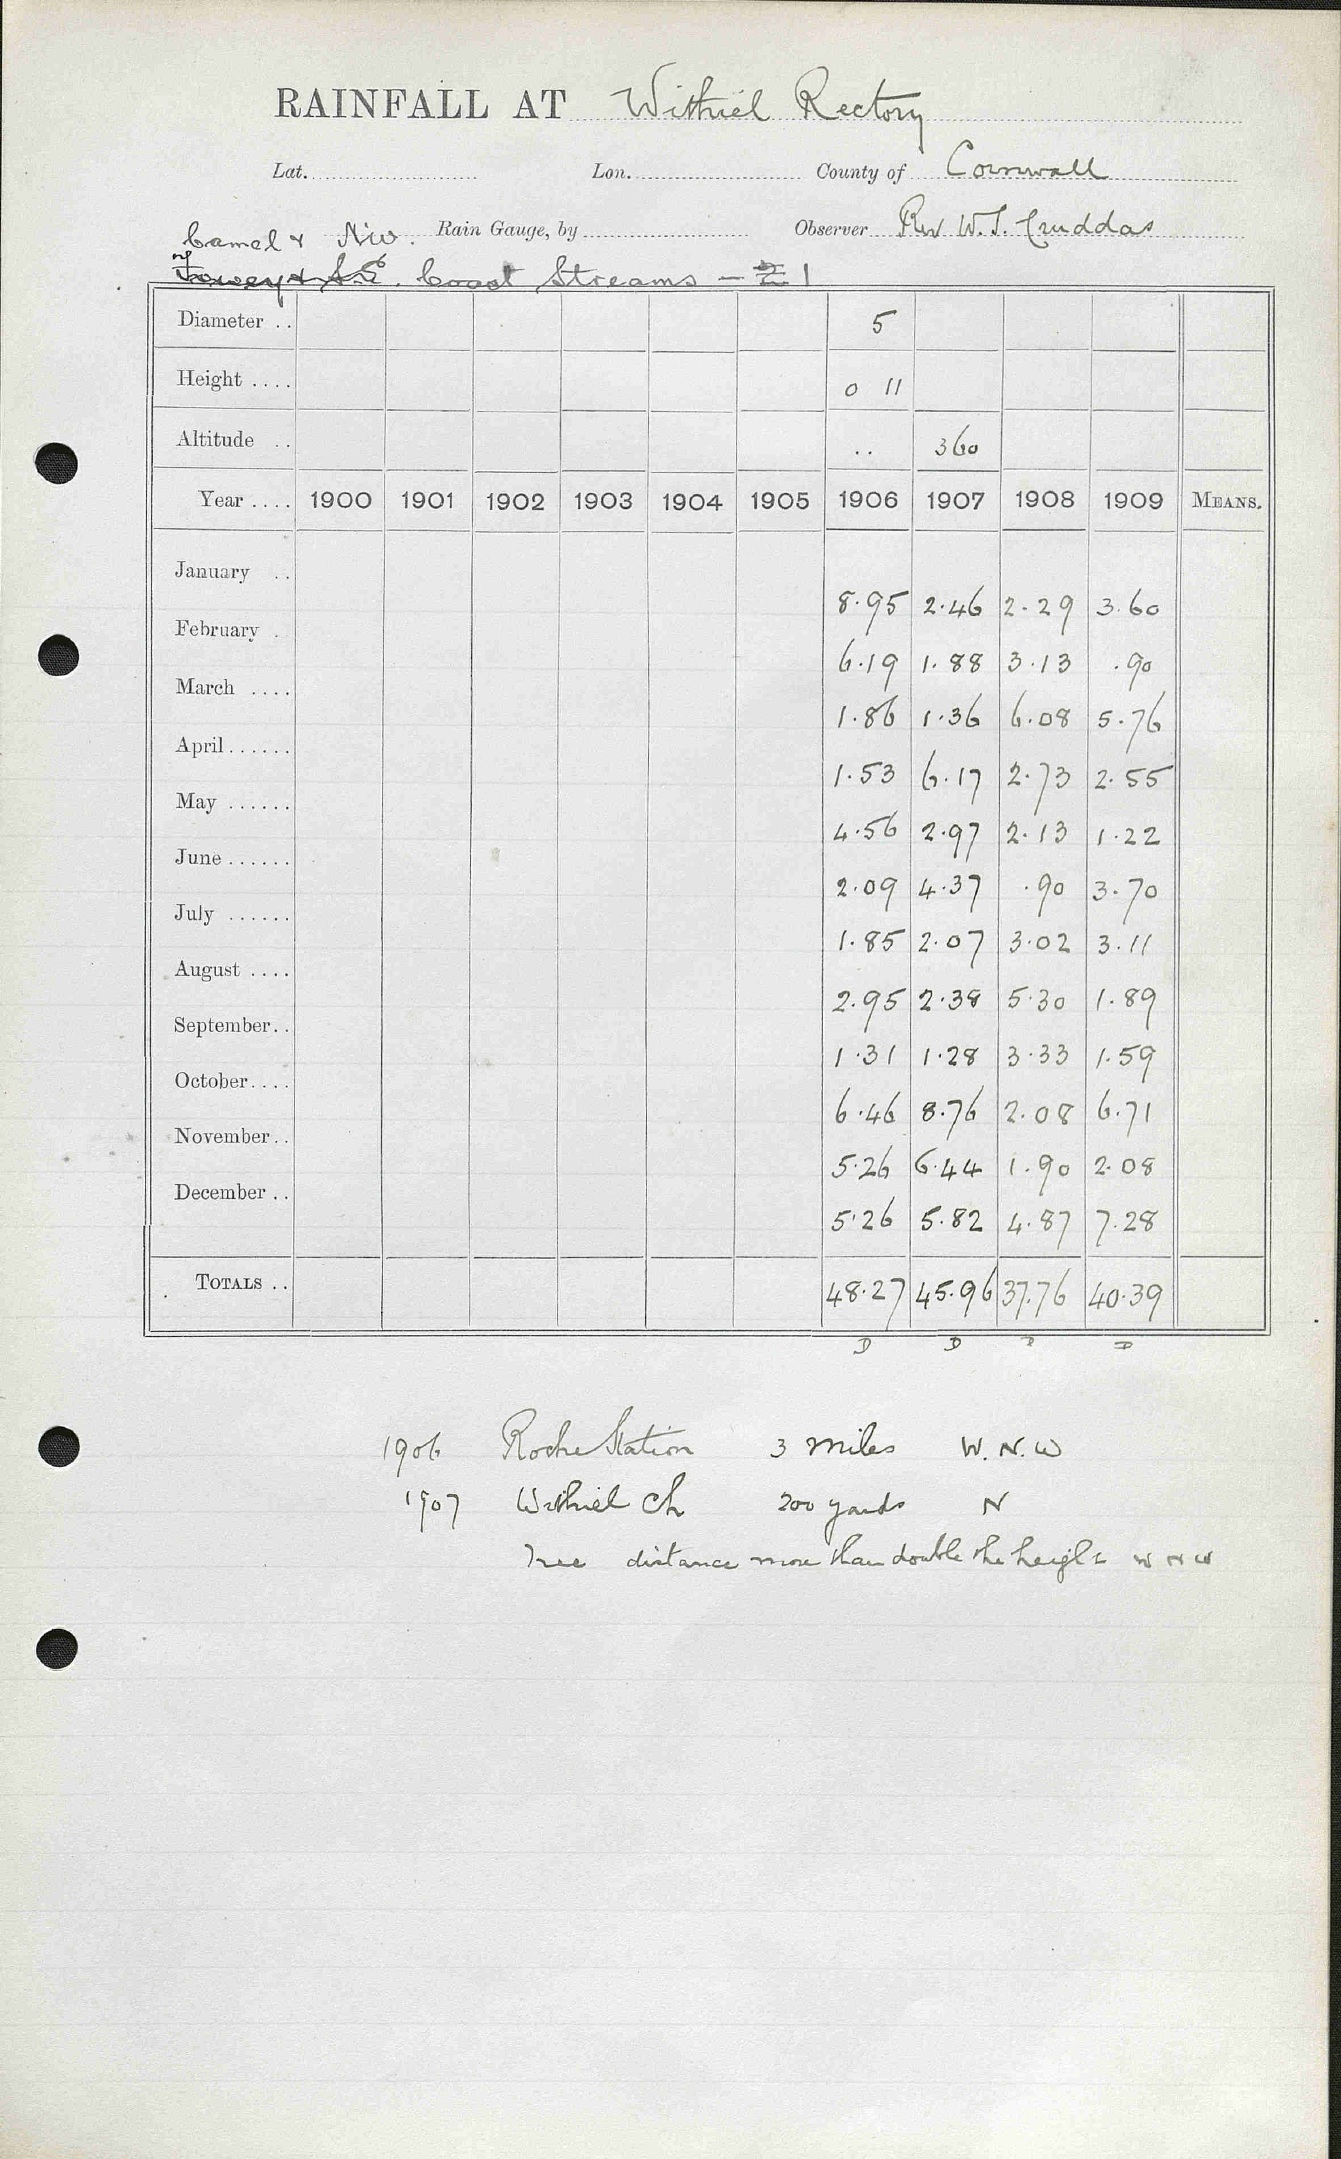 RAINFALL AT Withiel Rectory
Lat. Lon. County of Cornwall
Camel & N.W. Rain Gauge, by Observer Rev W. I. Cruddas
Fowey & S.E. Coast Streams – 2 1
Diameter .. 5
Height .... 0 11
Altitude .. .. 360
Year .... 1900 1901 1902 1903 1904 1905 1906 1907 1908 1909 MEANS.
January .. 8.95 2.46 2.29 3.60
February . 6.19 1.88 3.13 .90
March .... 1.86 1.36 6.08 5.76
April ...... 1.53 6.17 2.73 2.55
May ...... 4.56 2.97 2.13 1.22
June ...... 2.09 4.37 .90 3.70
July ...... 1.85 2.07 3.02 3.11
August .... 2.95 2.38 5.30 1.89
September.. 1.31 1.28 3.33 1.59
October.... 6.46 8.76 2.08 6.71
November.. 5.26 6.44 1.90 2.08
December .. 5.26 5.82 4.87 7.28
TOTALS .. 48.27 45.96 37.76 40.39
D D D D
1906 Roche Station 3 miles W.N.W
1907 Withiel Ch 200 yards N
Tree distance more than double the height W N W